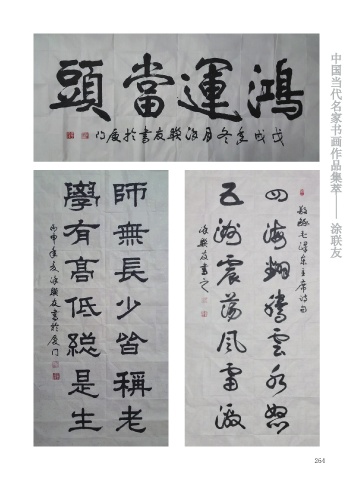 鴻運當頭
戊戌年冬月涂联友書於厦门
師無長少皆稱老
學有高低總是生
丙申年友涂联友書於厦门
敬錄毛澤東主席詩句
四海翻騰雲水怒
五洲震蕩風雷激
涂联友書
中国当代名家书画作品集萃——涂联友
264